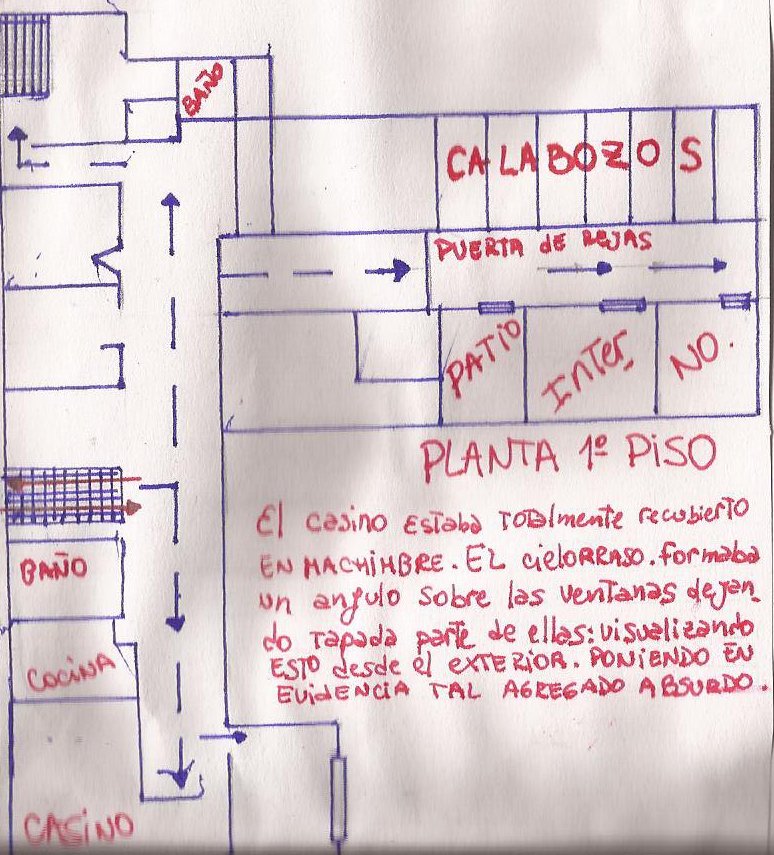 BAÑO
CALABOZOS
PUERTA de REJAS
PATIO INTER_ NO.
PLANTA 1º PISO
El casino ESTABA TOTALmente recubierto
EN MACHIMBRE. EL cieloRRASO. formaba
un angulo sobre las ventanas dejan_
do TAPADA parte de ellas: visualizando
ESTO desde el EXTERIOR. PONIENDO EN
EVIDENCIA TAL AGREGADO ABSURDO.
BAÑO
COCINA
CASINO